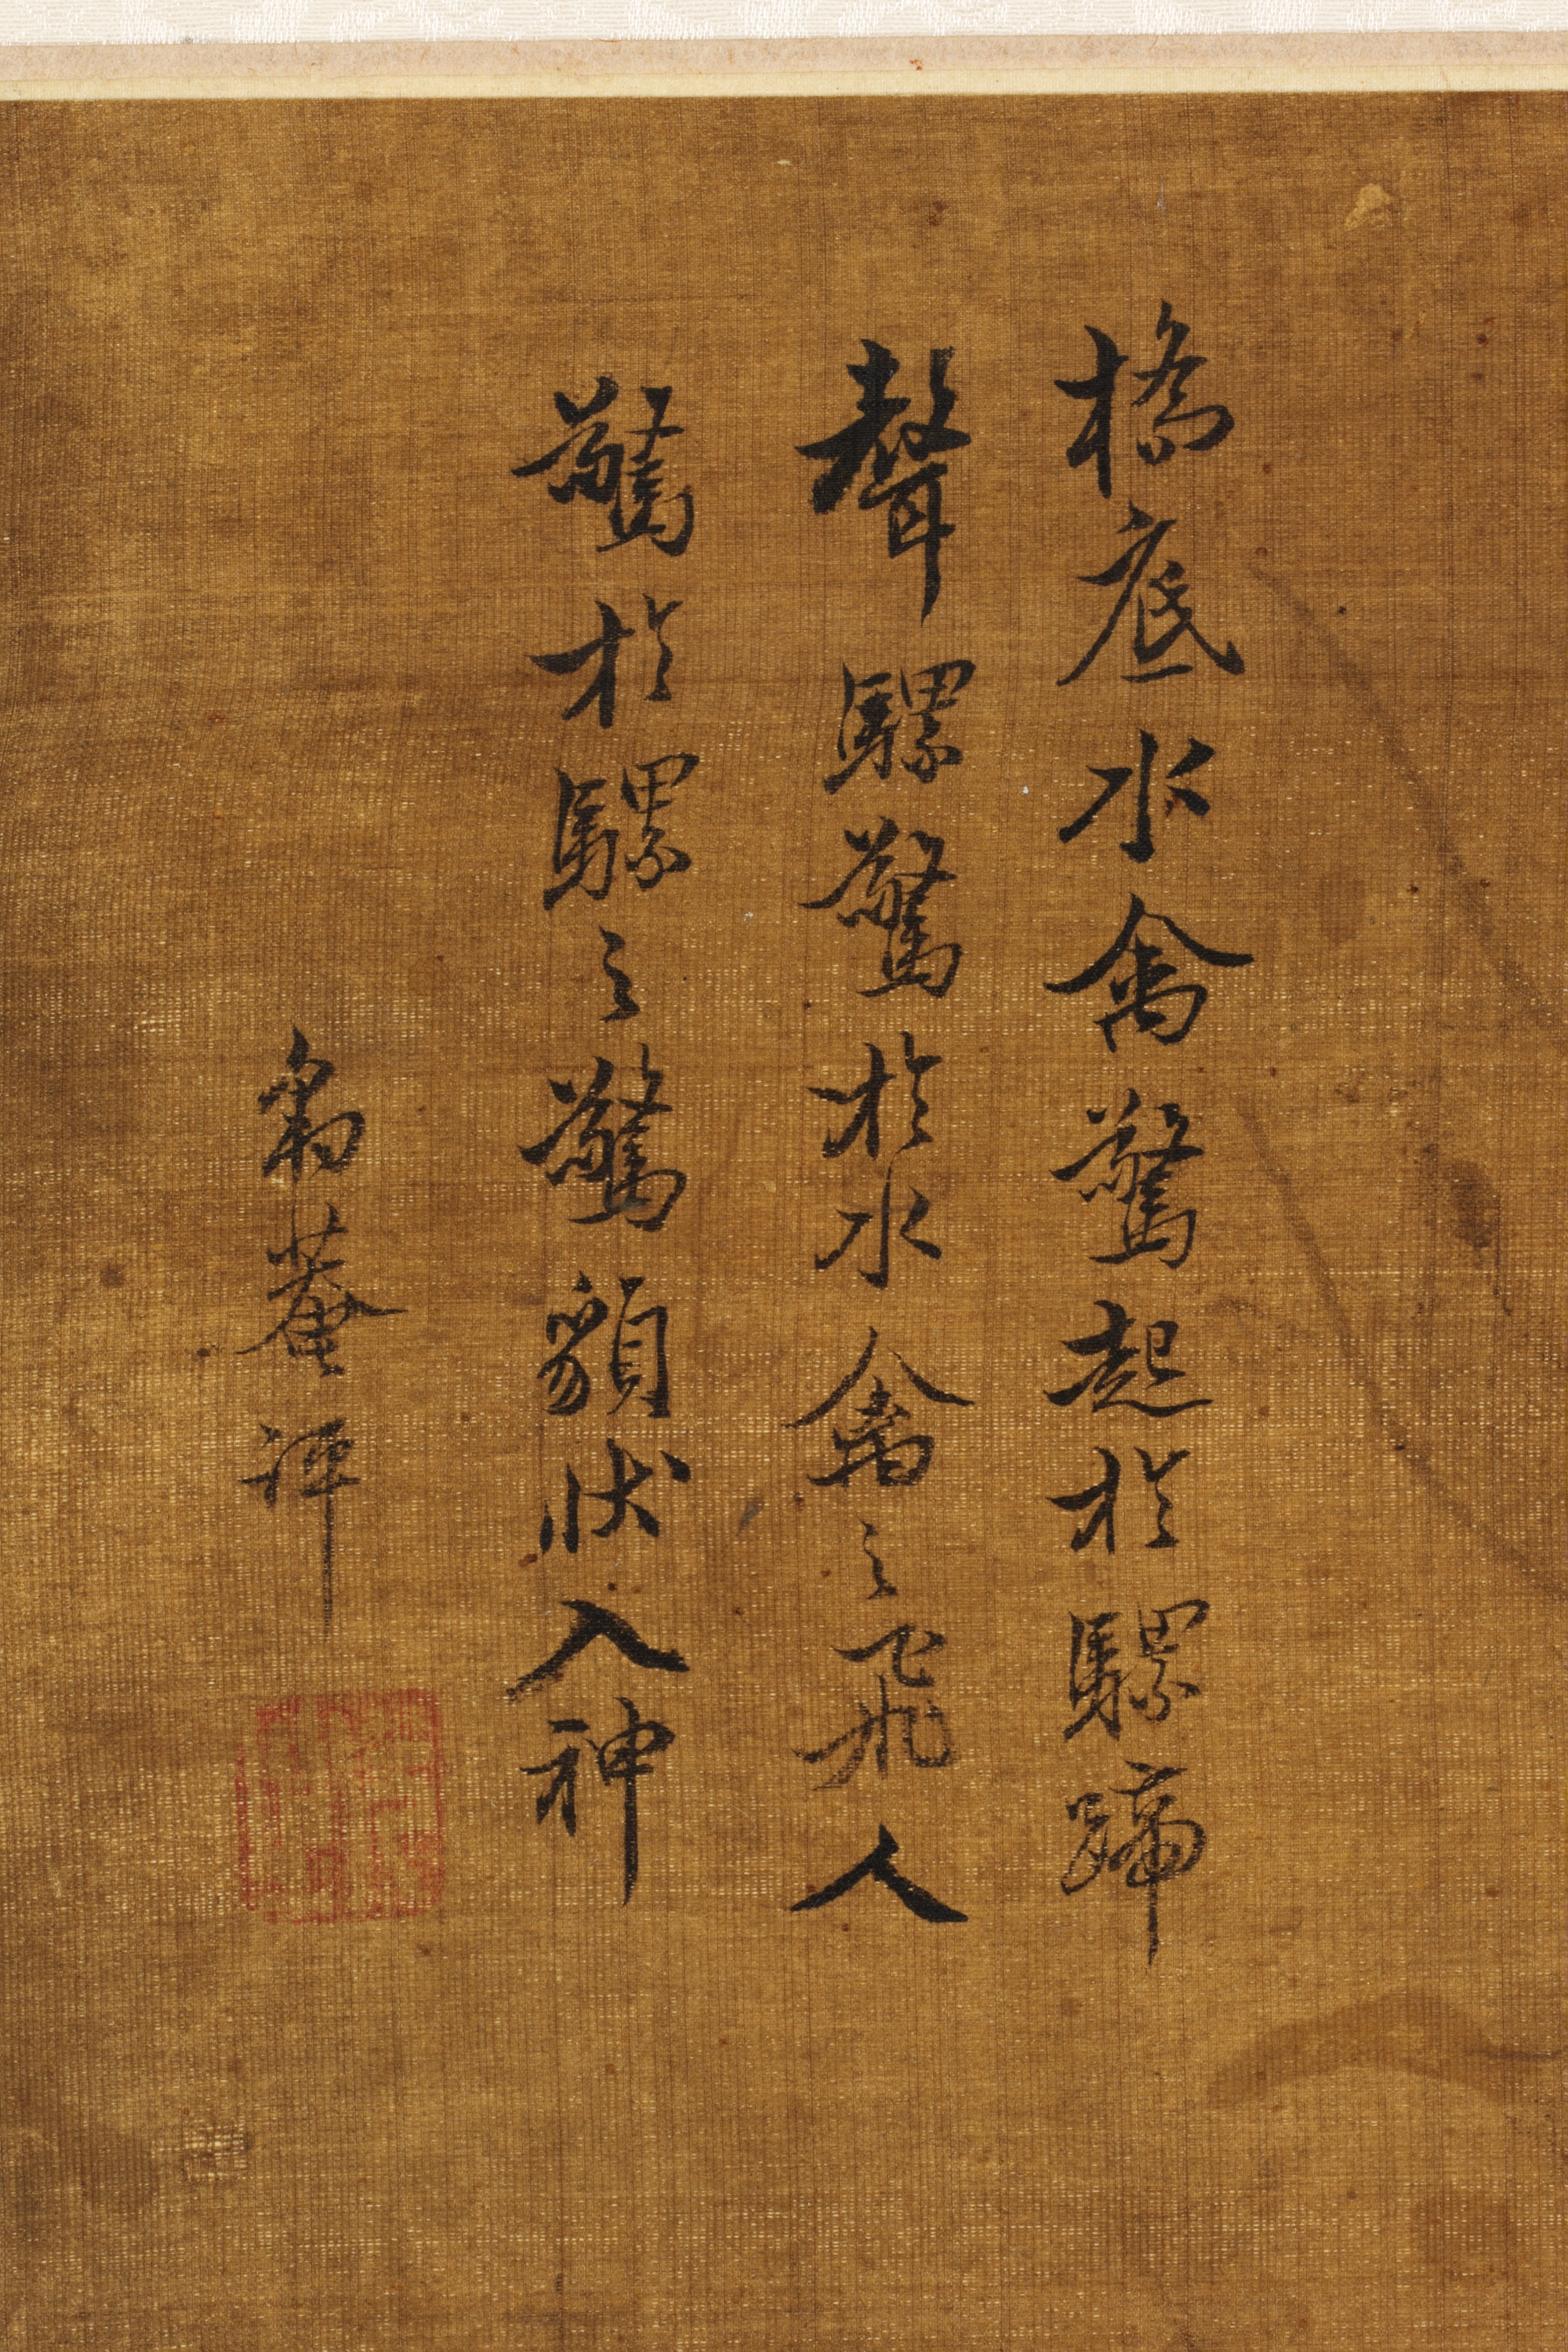 橋底水禽驚起於騾蹄
聲騾驚於水禽之飛人
驚於騾之驚貌狀入神
菴評